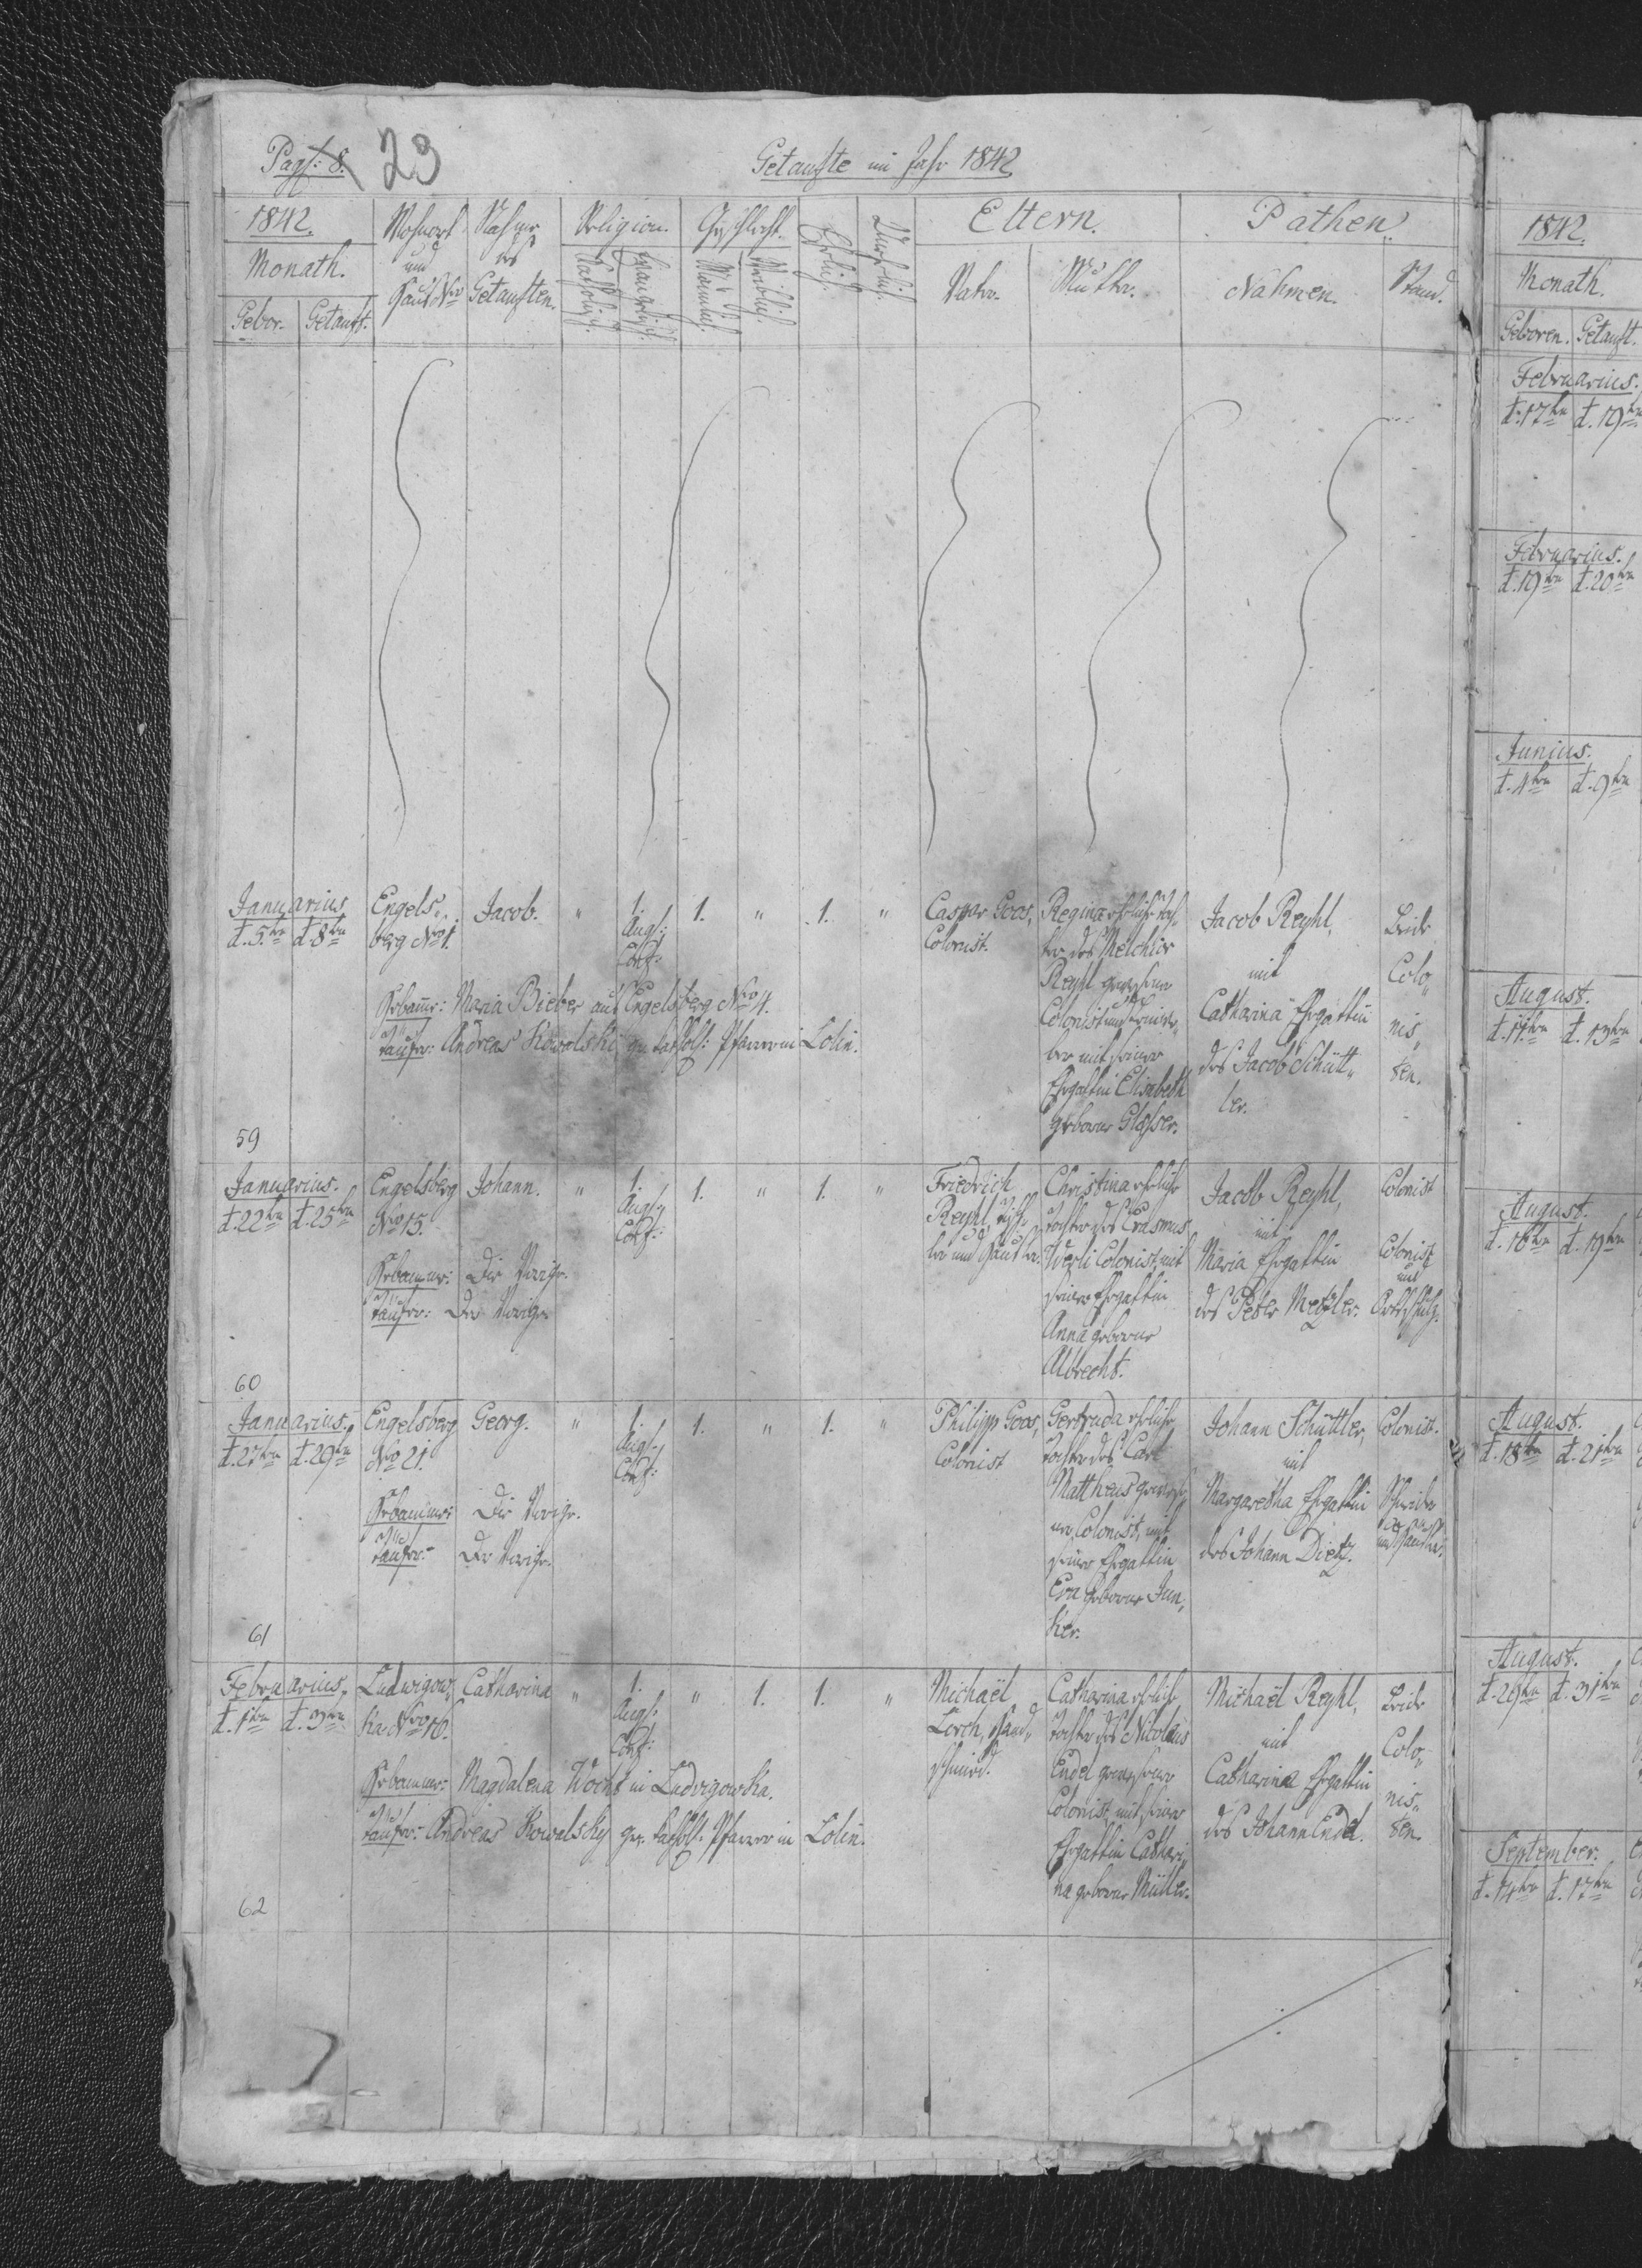 Pag: 8. 23
Getaufte im Jahr 1842
1842.
Monath.
Gebor. Getauft.
Wohnort und Haus Nro
Nahme des Getauften.
Religion.
Katholisch. Evangelisch.
Geschlecht.
Männl. Weibl.
Ehelich.
Unehelich.
Eltern.
Vater. Mutter.
Pathen.
Nahmen. Stand.
Januarius
d. 5ten d. 8ten
Engels„
berg Nro 1.
Jacob.
"
1.
Augs:
Conf:
1. " 1. "
Caspar Goos,
Colonist.
Regina eheliche Toch„
ter des Melchior
Reyhl gewesener
Colonist und
ber mit seiner
Ehegattin Elisabeth
geborne Glasser.
Jacob Reyhl,
mit
Catharina Ehegattin
des Jacob Schütt„
ler.
Beide
Colo„
nis„
ten.
Hebamme: Maria Bieber aus Engelsberg Nro 4.
Taufer: Andreas Kowalski gr. kathol: Pfarrer in Lolin.
59
Januarius.
d. 22ten d. 25ten
Engelsberg
Nro 15.
Johann.
"
1.
Augs:
Conf:
1. " 1. "
Friedrich
Reyhl, Tisch„
ler und Häusler.
Christina eheliche
Tochter des Erasmus
Werli Colonist, mit
seiner Ehegattin
Anna geborne
Albrecht.
Jacob Reyhl,
mit
Maria Ehegattin
des Peter Metzler.
Colonist
Colonist
und
Hebamme: Die Vorige.
Taufer: Der Vorige
60
Januarius.
d. 27ten d. 29ten
Engelsberg
Nro 21.
Georg.
"
1.
Augs:
Conf:
1. " 1. "
Philipp Goos,
Colonist
Gertruda eheliche
Tochter des Carl
Mattheus gewese„
ner Colonist, mit
seiner Ehegattin
Eva geborne Jun„
ker.
Johann Schüttler,
mit
Margaretha Ehegattin
des Johann Dietz.
Colonist.
Schneider
und Häusler.
Hebamme: Die Vorige.
Taufer: Der Vorige.
61
Februarius.
d. 1ten d. 3ten
Ludwigow„
ka Nro 16.
Catharina
"
1.
Augs:
Conf:
" 1. 1. "
Michaël
Lerch,
schmied.
Catharina eheliche
Tochter des Nicolaus
Endel gewesener
Colonist, mit seiner
Ehegattin Cathari„
na geborne Müller.
Michaël Reyhl,
mit
Catharina Ehegattin
des Johann Endel.
Beide
Colo„
nis„
ten.
Hebamme: Magdalena Wocht in Ludwigowka.
Taufer: Andreas Kowalsky gr. kathol: Pfarrer in Lolin.
62
1842.
Monath.
Geboren. Getauft.
Februarius.
d. 17ten d. 19ten
Februarius.
d. 19ten d. 20ten
Junius.
d. 4ten d. 9ten
August.
d. 11ten d. 13ten
August.
d. 16ten d. 19ten
August.
d. 18ten d. 21ten
August.
d. 29ten d. 31ten
September.
d. 14ten d. 17ten